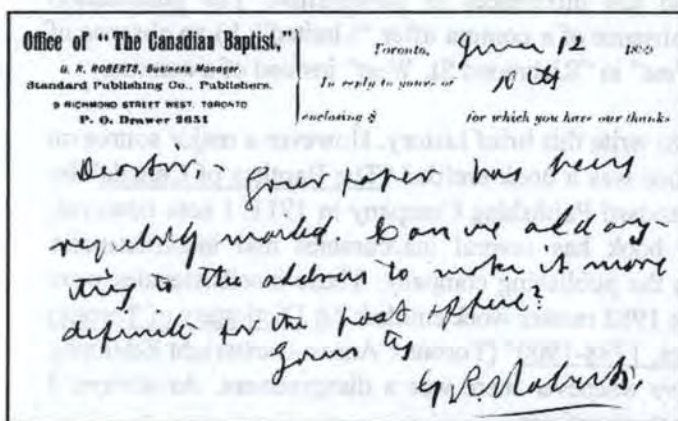 Office of "The Canadian Baptist,"
G. R. ROBERTS, Business Manager.
Standard Publishing Co., Publishers.
9 RICHMOND STREET WEST, TORONTO
P. O. Drawer 2631
Toronto, June 12 188
In reply to yours of
enclosing $ for which you have our thanks
Dear Sir:- Your paper has been
regularly mailed. Can we add any-
thing to the address to make it more
definite for the post office?
Yours try
G. R. Roberts.